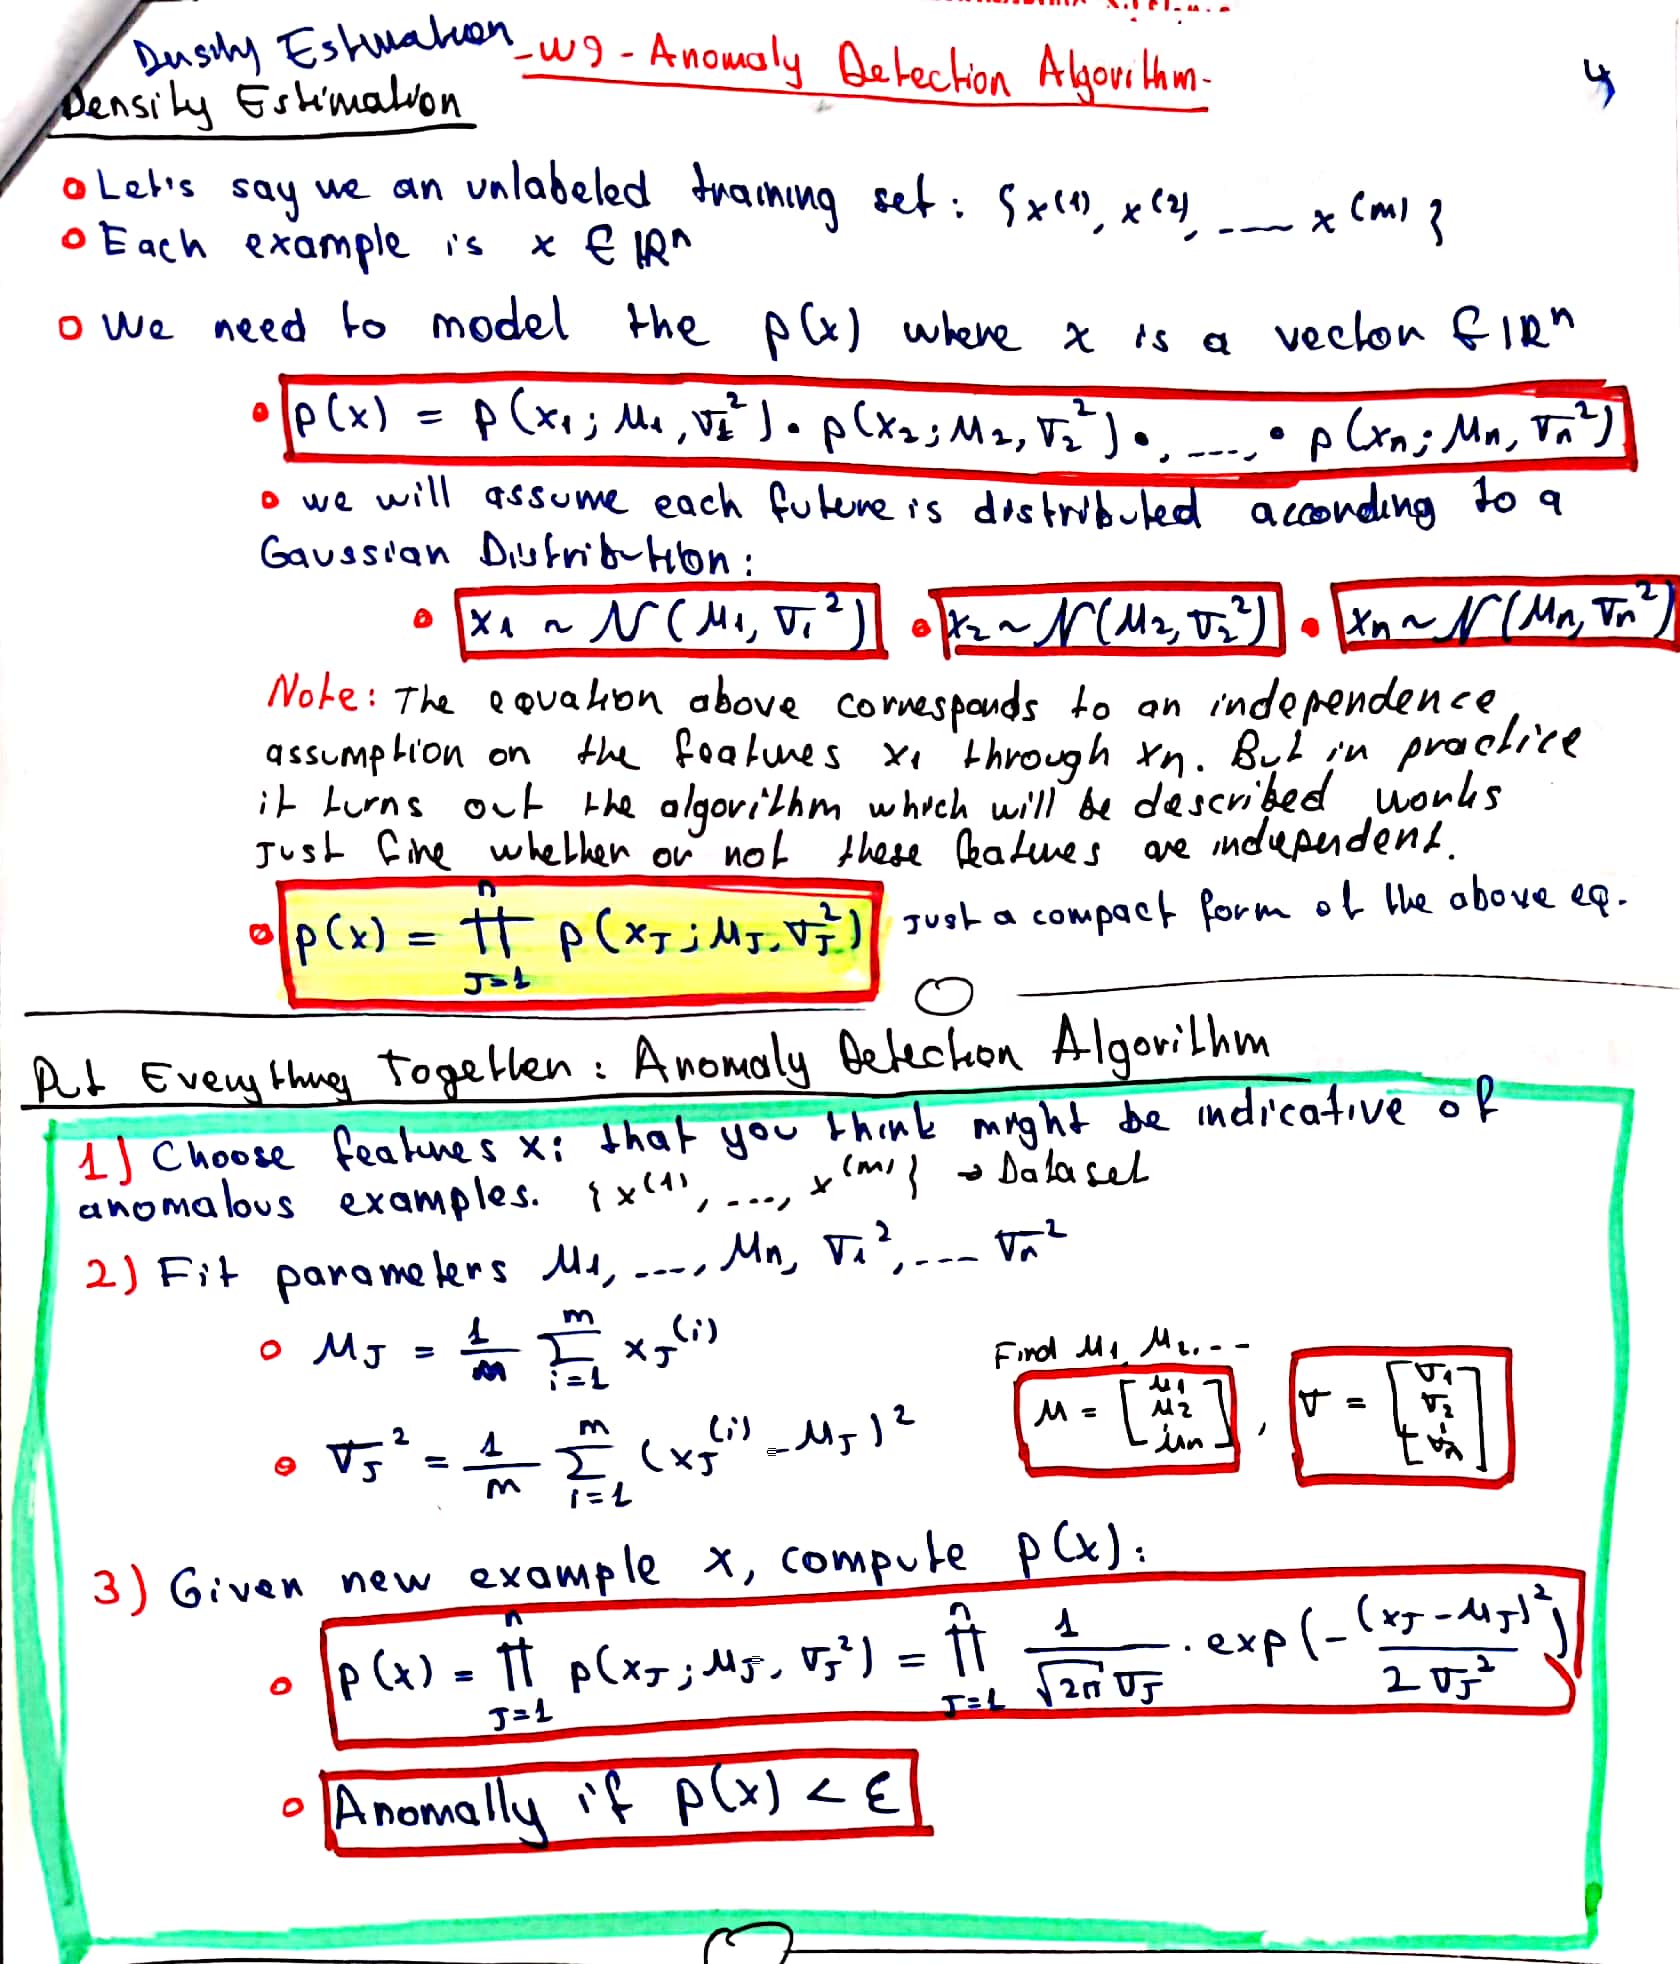 Density Estimation
-W9 - Anomaly Detection Algorithm-
4
Density Estimation
Let's say we an unlabeled training set : {x(1), x(2), --- x(m)}
Each example is x ∈ ℝⁿ
We need to model the p(x) where x is a vector ∈ ℝⁿ
p(x) = p(x₁; μ₁, σ₁²) . p(x₂; μ₂, σ₂²) . , ---, . p(xₙ; μₙ, σₙ²)
we will assume each futere is distributed according to a
Gaussian Distribution :
x₁ ~ N(μ₁, σ₁²) x₂ ~ N(μ₂, σ₂²) xₙ ~ N(μₙ, σₙ²)
Note : The equation above corresponds to an independence
assumption on the features x₁ through xₙ. But in practice
it turns out the algorithm which will be described works
Just fine whether or not these features are independent.
p(x) = ∏ⁿ_{J=1} p(x_J; μ_J, σ_J²) Just a compact form of the above eq.
Put Everything Together : Anomaly Detection Algorithm
1) Choose features xᵢ that you think might be indicative of
anomalous examples. {x(1), ---, x(m)} → Dataset
2) Fit parameters μ₁, ---, μₙ, σ₁², --- σₙ²
μ_J = 1/m ∑ᵐ_{i=1} x_J(i)
Find μ₁, μ₂, --
σ_J² = 1/m ∑ᵐ_{i=1} (x_J(i) - μ_J)²
μ = [μ₁ μ₂ : μₙ] , σ = [σ₁ σ₂ : σₙ]
3) Given new example x, compute p(x) :
p(x) = ∏ⁿ_{J=1} p(x_J; μ_J, σ_J²) = ∏ⁿ_{J=1} 1/(√2π σ_J) . exp(-(x_J - μ_J)²/2σ_J²)
Anomally if p(x) < ε